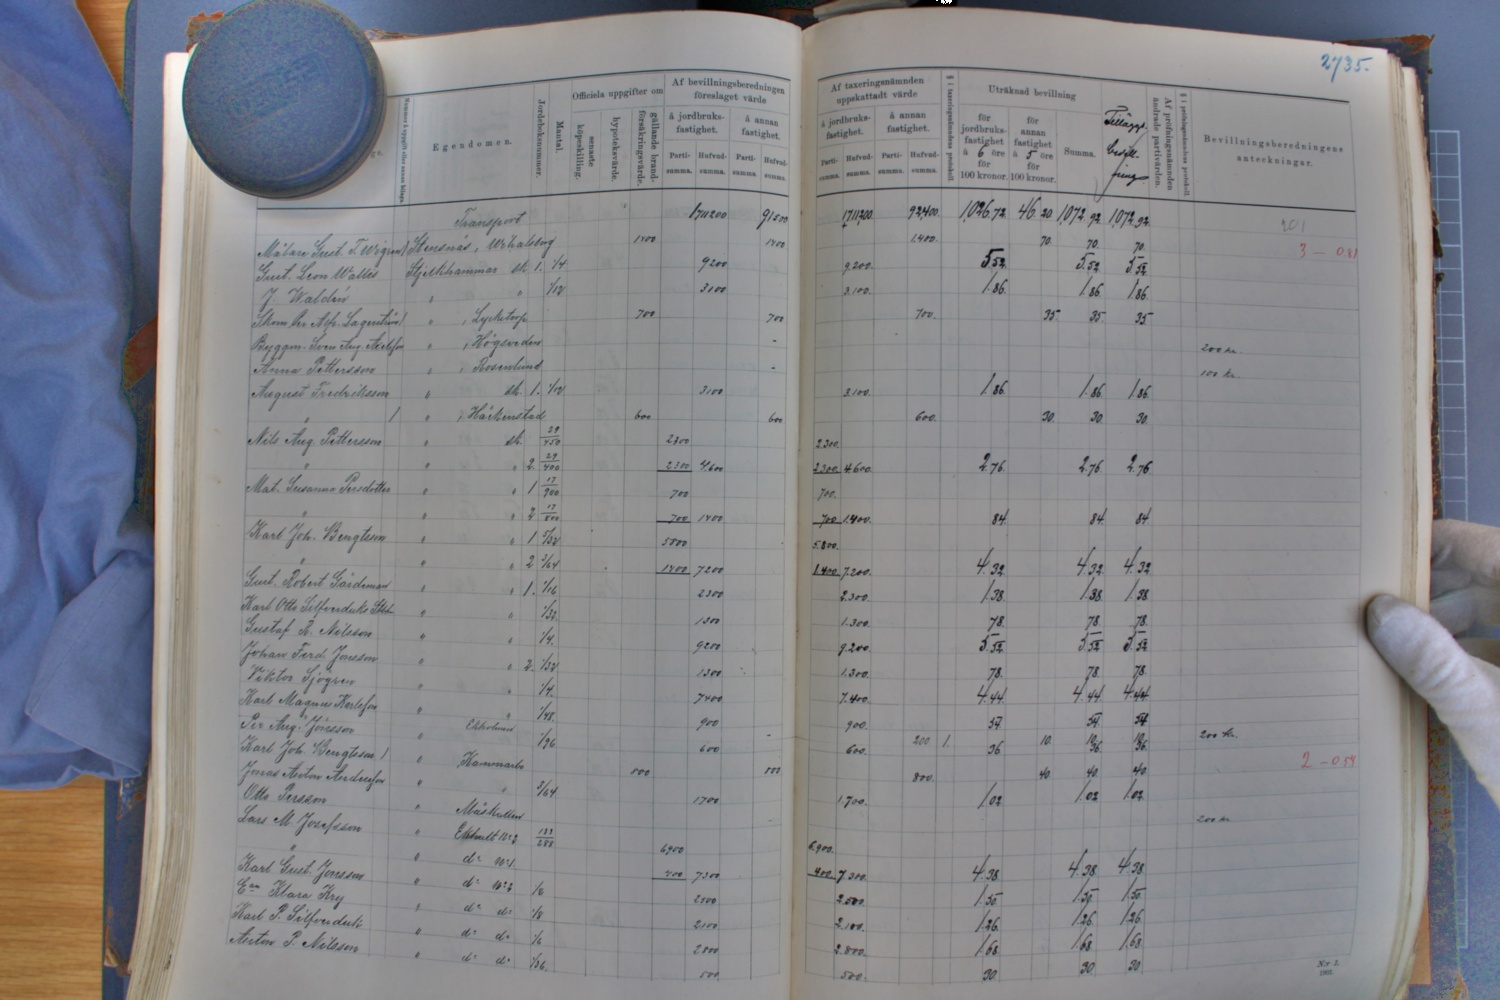 2735.
Egendomen.
Jordeboksnummer.
Mantal.
Officiela uppgifter om
senaste köpeskilling.
hypoteksvärde.
gällande brandförsäkringsvärde.
Af bevillningsberedningen föreslaget värde
å jordbruksfastighet.
å annan fastighet.
Partisumma.
Hufvudsumma.
Partisumma.
Hufvudsumma.
Af taxeringsnämnden uppskattadt värde
å jordbruksfastighet.
å annan fastighet.
Partisumma.
Hufvudsumma.
Partisumma.
Hufvudsumma.
§ i taxeringsnämndens protokoll
Uträknad bevillning
för jordbruksfastighet à 6 öre för 100 kronor.
för annan fastighet à 5 öre för 100 kronor.
Summa.
Tilläggsbevillning
Af pröfningsnämnden ändrade partivärden.
§ i pröfningsnämndens protokoll
Bevillningsberedningens anteckningar.
Transport 1711200 91500 1,711,200. 92,400. 1,026.72 46.20. 1,072.92 1,072.92
Stensnäs, 1400 1400 1,400. 70. 70. 70. 3 — 0.81
Gust. Leon Wallés Stjelkhammar sk. 1. 1/4 9200 9,200. 5.52 5.52 5.52
J. Waldén " " 1/12 3100 3,100. 1.86. 1.86 1.86.
" 700 700 700. 35 35 35
" - 200 kr.
Anna Pettersson " , Rosenlund - 100 kr.
August Fredriksson " sk. 1. 1/12 3100 3,100. 1.86. 1.86 1.86.
" " , Häckenstad 600 600 600. 30. 30. 30.
Nils Aug. Pettersson " sk. 29/450 2300 2.300.
" " " 2. 29/400 2300 4600 2300. 4.600. 2.76. 2.76. 2.76
Mat. Susanna Persdotter " " 1 17/900 700 700.
" " " 2 17/800 700 1400 700 1.400. 84. 84. 84
Karl Joh. Bengtsson " " 1 5/32 5800 5.800.
" " " 2 3/64 1400 7200 1.400. 7.200. 4.32 4.32 4.32
Gust. Robert Gärdeman " " 1. 1/16 2300 2.300. 1.38. 1.38 1.38
" " 1/32 1300 1.300. 78. 78. 78.
Gustaf R. Nilsson " " 1/4. 9200 9.200. 5.52 5.52 5.52
Johan Ferd. Jonsson " " 2. 1/32 1300 1.300. 78. 78. 78.
Viktor Sjögren " " 1/4. 7400 7.400. 4.44 4.44 4.44
Karl Magnus Karlsson " " 1/48. 900 900. 54. 54 54
Per Aug. Jönsson " Ekholmen 1/96 600 - 600. 200 1. 36 10. 200 kr.
Karl Joh. Bengtsson " 800 800 800. 40. 40. 40. 2 — 0.54
Jonas Anton Andersson " " 3/64 1700 1.700. 1.02 1.02 1.02
Otto Persson " 200 kr.
Lars M. Josefsson " 133/288 6900 6.900.
" " d:o 400 7300 400. 7.300. 4.38 4.38 4.38
Karl Gust. Jonsson " d:o 1/6 2500 2.500. 1.50 1.50 1.50
Klara Kry " d:o d:o 1/8 2100 2.100. 1.26. 1.26. 1.26.
Karl P. Silfverduk " d:o d:o 1/6 2800 2.800. 1.68 1.68 1.68
Anton P. Nilsson " d:o d:o 1/36. 500 500. 30. 30. 30.